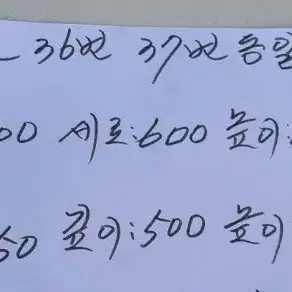 36번 37번 동일
00 세로:600 높이:
50 깊이:500 높이